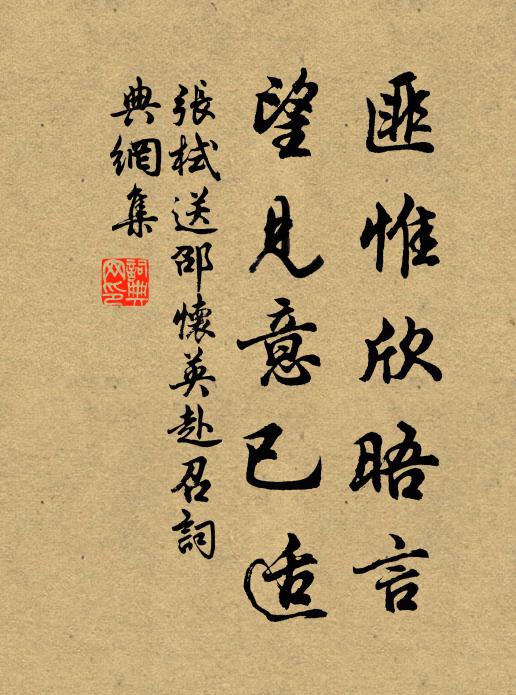 匪惟欣晤言
望見意已适
張栻送邵懷英赴召詞
典網集
詞典
网印